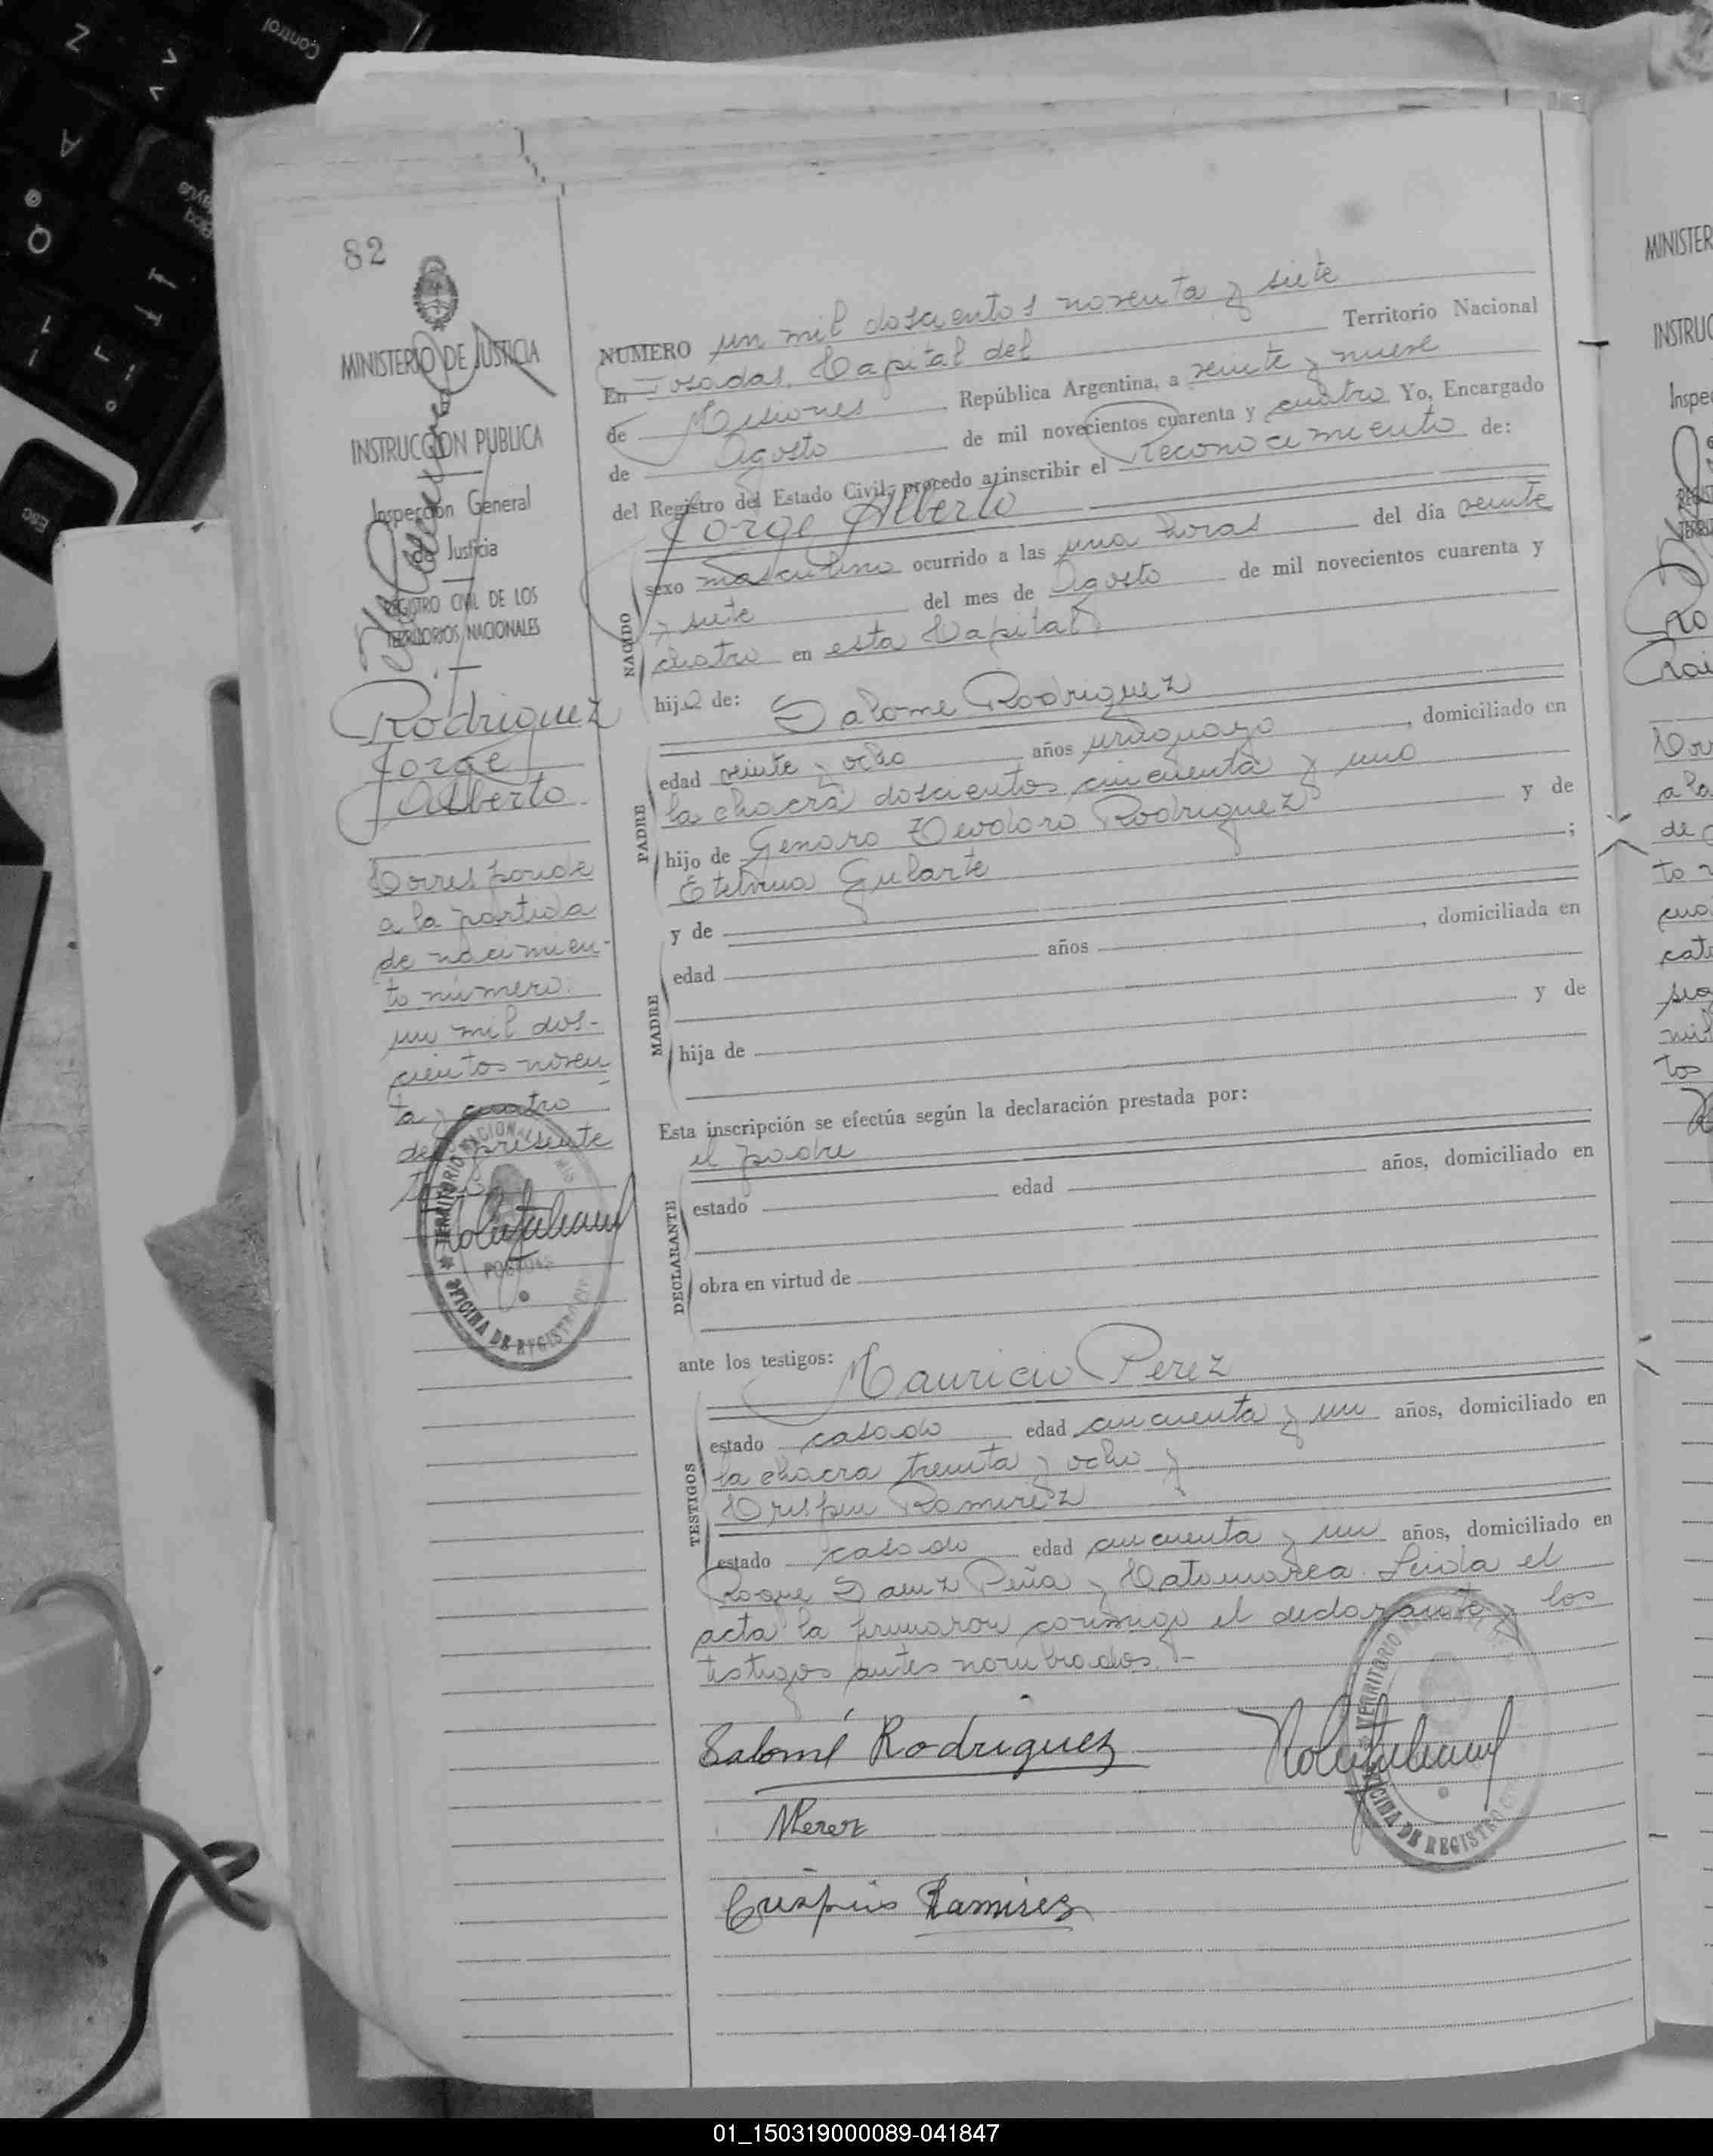 82
MINISTERIO DE JUSTICIA
INSTRUCCION PUBLICA
Inspección General
de Justicia
REGISTRO CIVIL DE LOS
TERRITORIOS NACIONALES
Rodriguez
Jorge
Alberto
Corresponde
a la partida
de nacimien-
to número
un mil dos-
cientos noven
ta y cuatro
del presente
NUMERO un mil doscientos noventa y siete
En Posadas, Capital del Territorio Nacional
de Misiones República Argentina, a veinte y nueve
de Agosto de mil novecientos cuarenta y cuatro Yo, Encargado
del Registro del Estado Civil, procedo a inscribir el reconocimiento de:
Jorge Alberto
NACIDO
sexo masculino ocurrido a las una horas del día veinte
y siete del mes de Agosto de mil novecientos cuarenta y
cuatro en esta Capital
hijo de: Salome Rodriguez
PADRE
edad veinte y ocho años uruguayo, domiciliado en
la chacra doscientos cincuenta y uno
hijo de Genaro Deodoro Rodriguez y de
Etelvina Gularte;
y de
MADRE
edad años, domiciliada en
hija de y de
Esta inscripción se efectúa según la declaración prestada por:
el padre
DECLARANTE
estado edad años, domiciliado en
obra en virtud de
ante los testigos: Mauricio Perez
TESTIGOS
estado casado edad cincuenta y un años, domiciliado en
la chacra treinta y ocho y
Crispin Ramirez
estado casado edad cincuenta y un años, domiciliado en
Roque Saenz Peña y Catamarca. Leida el
acta la firmaron conmigo el declarante y los
testigos antes nombrados.-
Salomé Rodriguez
MPerez
Crispin Ramirez
TERRITORIO NACIONAL DE
OFICINA DE REGISTRO CIVIL
POSADAS
Control
Esc
01_150319000089-041847